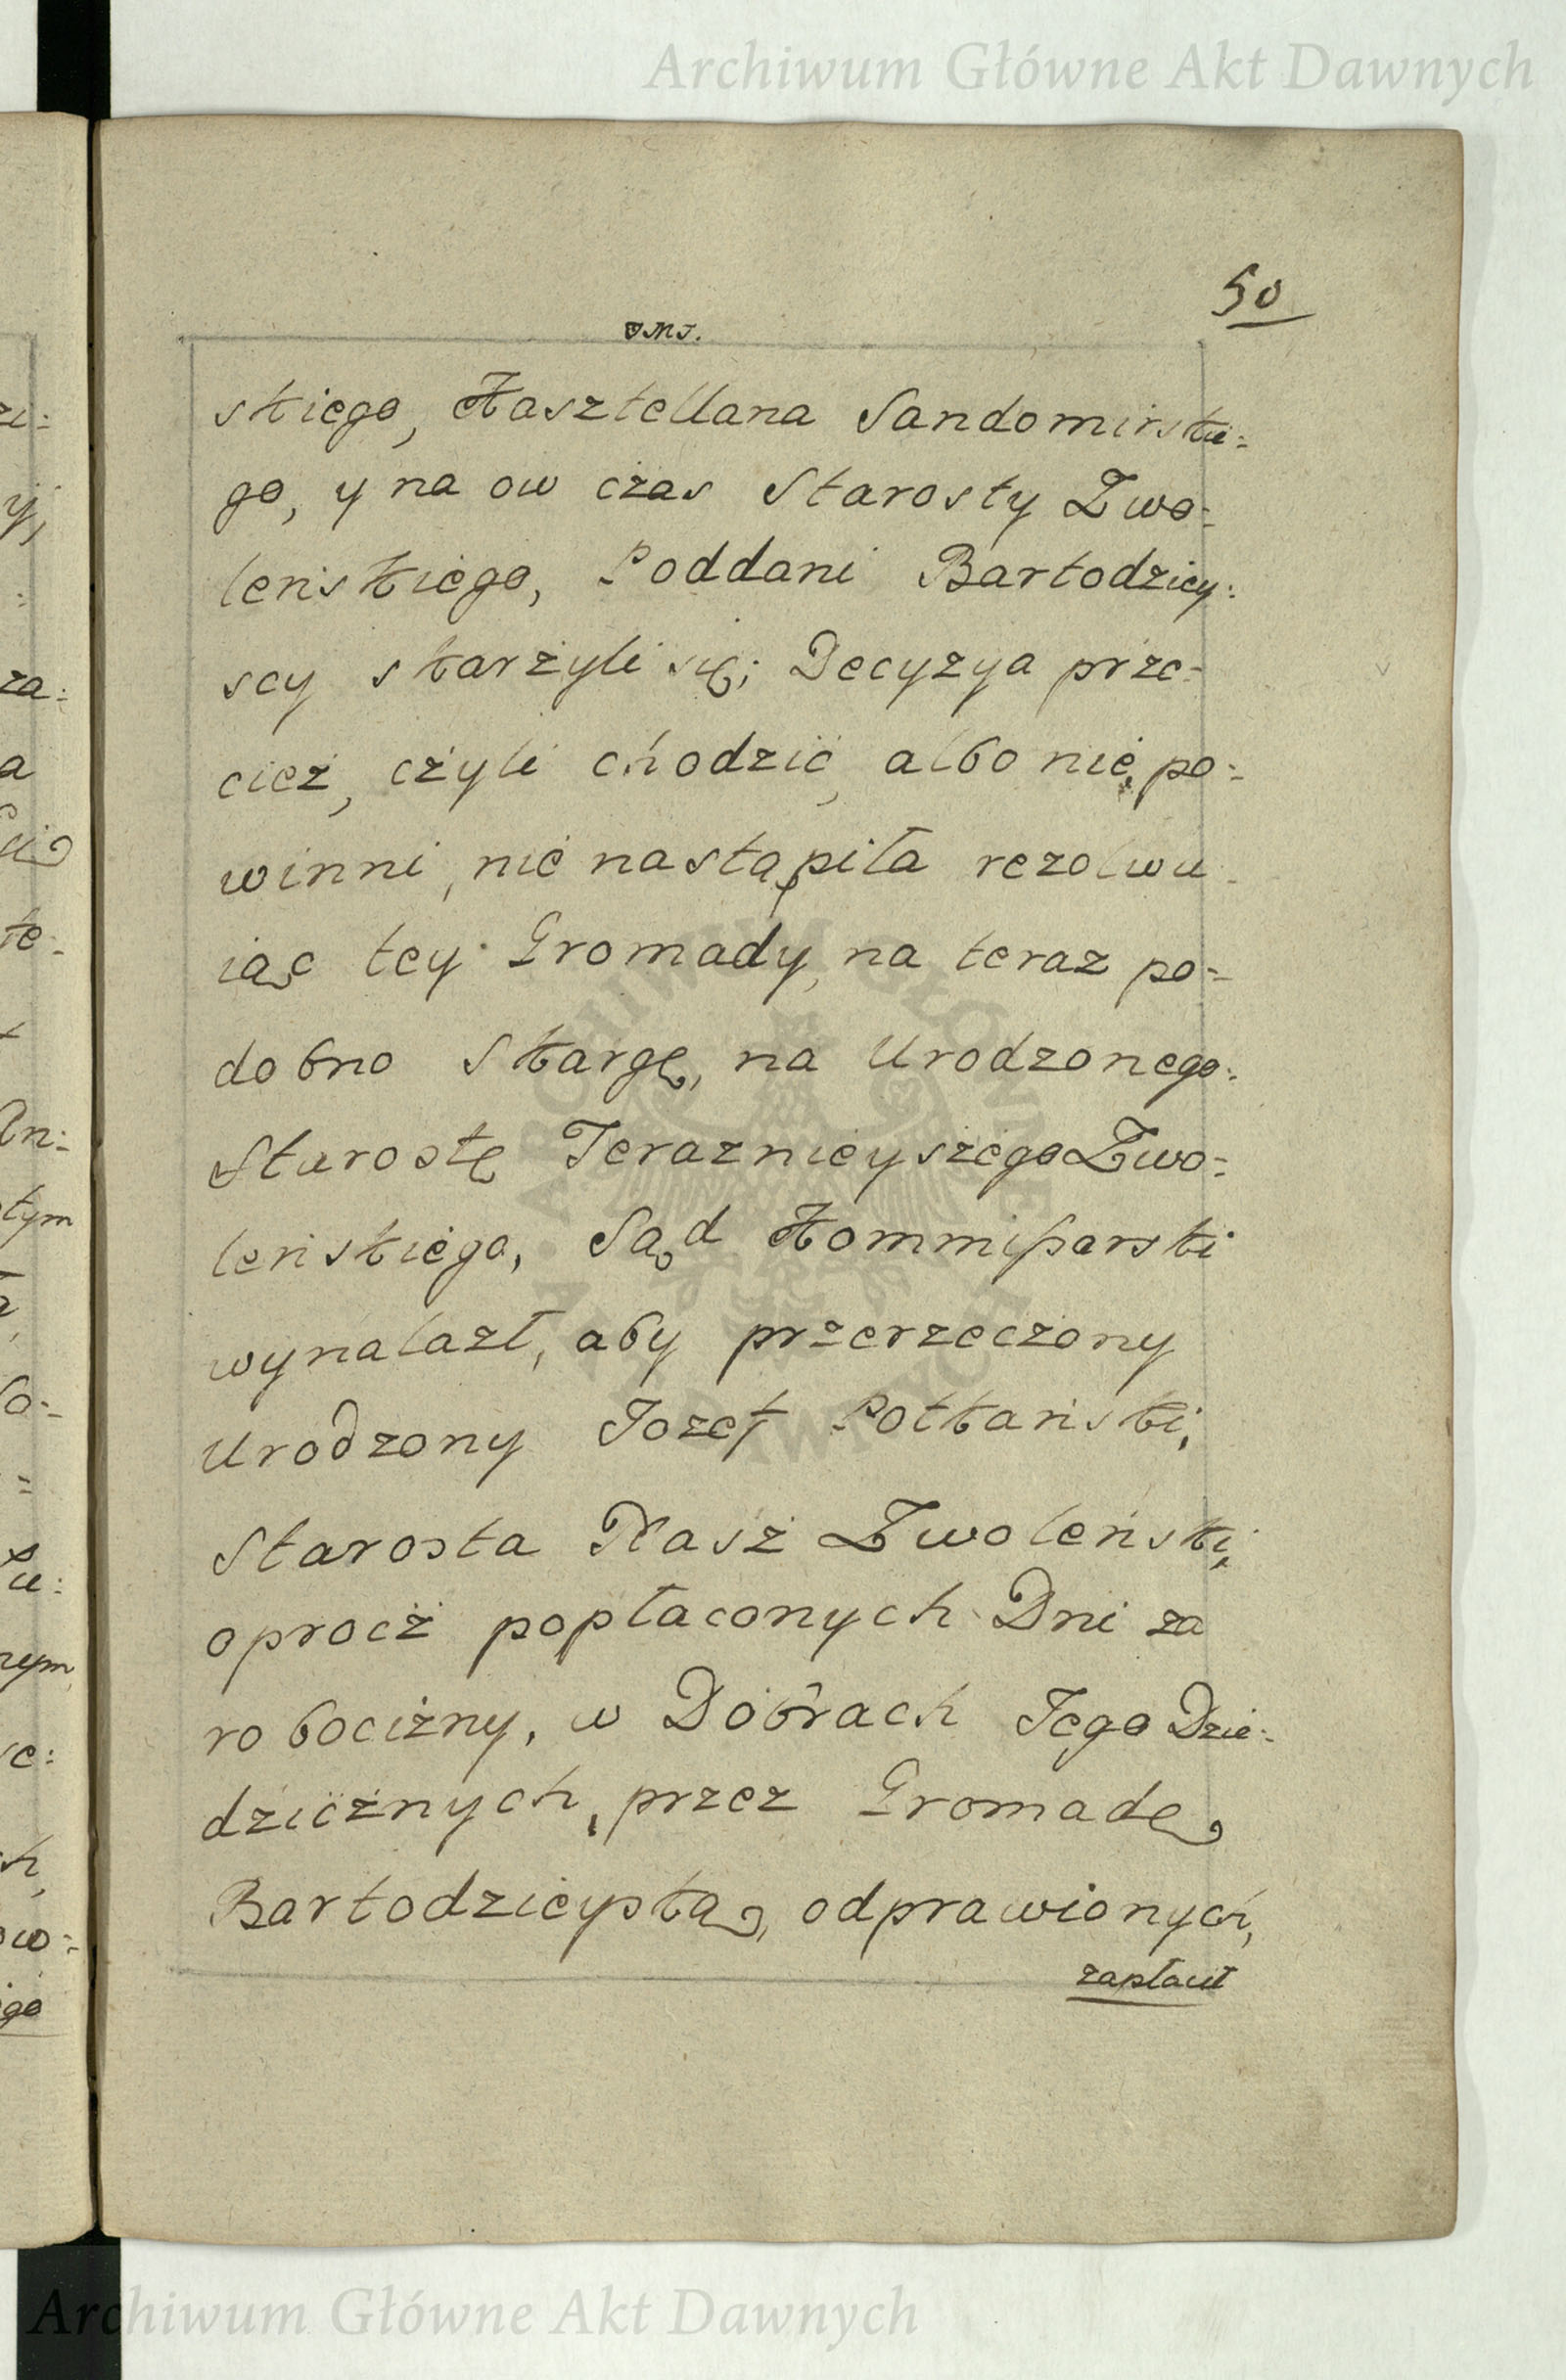 Archiwum Główne Akt Dawnych
50
skiego, Kasztellana Sandomirskie=
go, y na ow czas Starosty Zwo=
leńskiego, Poddani Bartodziey:
scy skarżyli się; Decyzya prze=
cież, czyli chodzić, albo nie, po=
winni, nie nastąpiła rezolwu=
iąc tey Gromady, na teraz po=
dobno Skargę, na Urodzonego:
Starostę Teraznieyszego Zwo=
leńskiego, Sąd Kommißarski
wynalazł, aby przerzeczony
Urodzony Jozef Potkański,
Starosta Nasz Zwoleński,
oprocż popłaconych Dni za
robocizny, w Dobrach Jego Dzie=
dzicżnych, przez Gromadę
Bartodzieyską, odprawionych,
zapłacił
Archiwum Główne Akt Dawnych